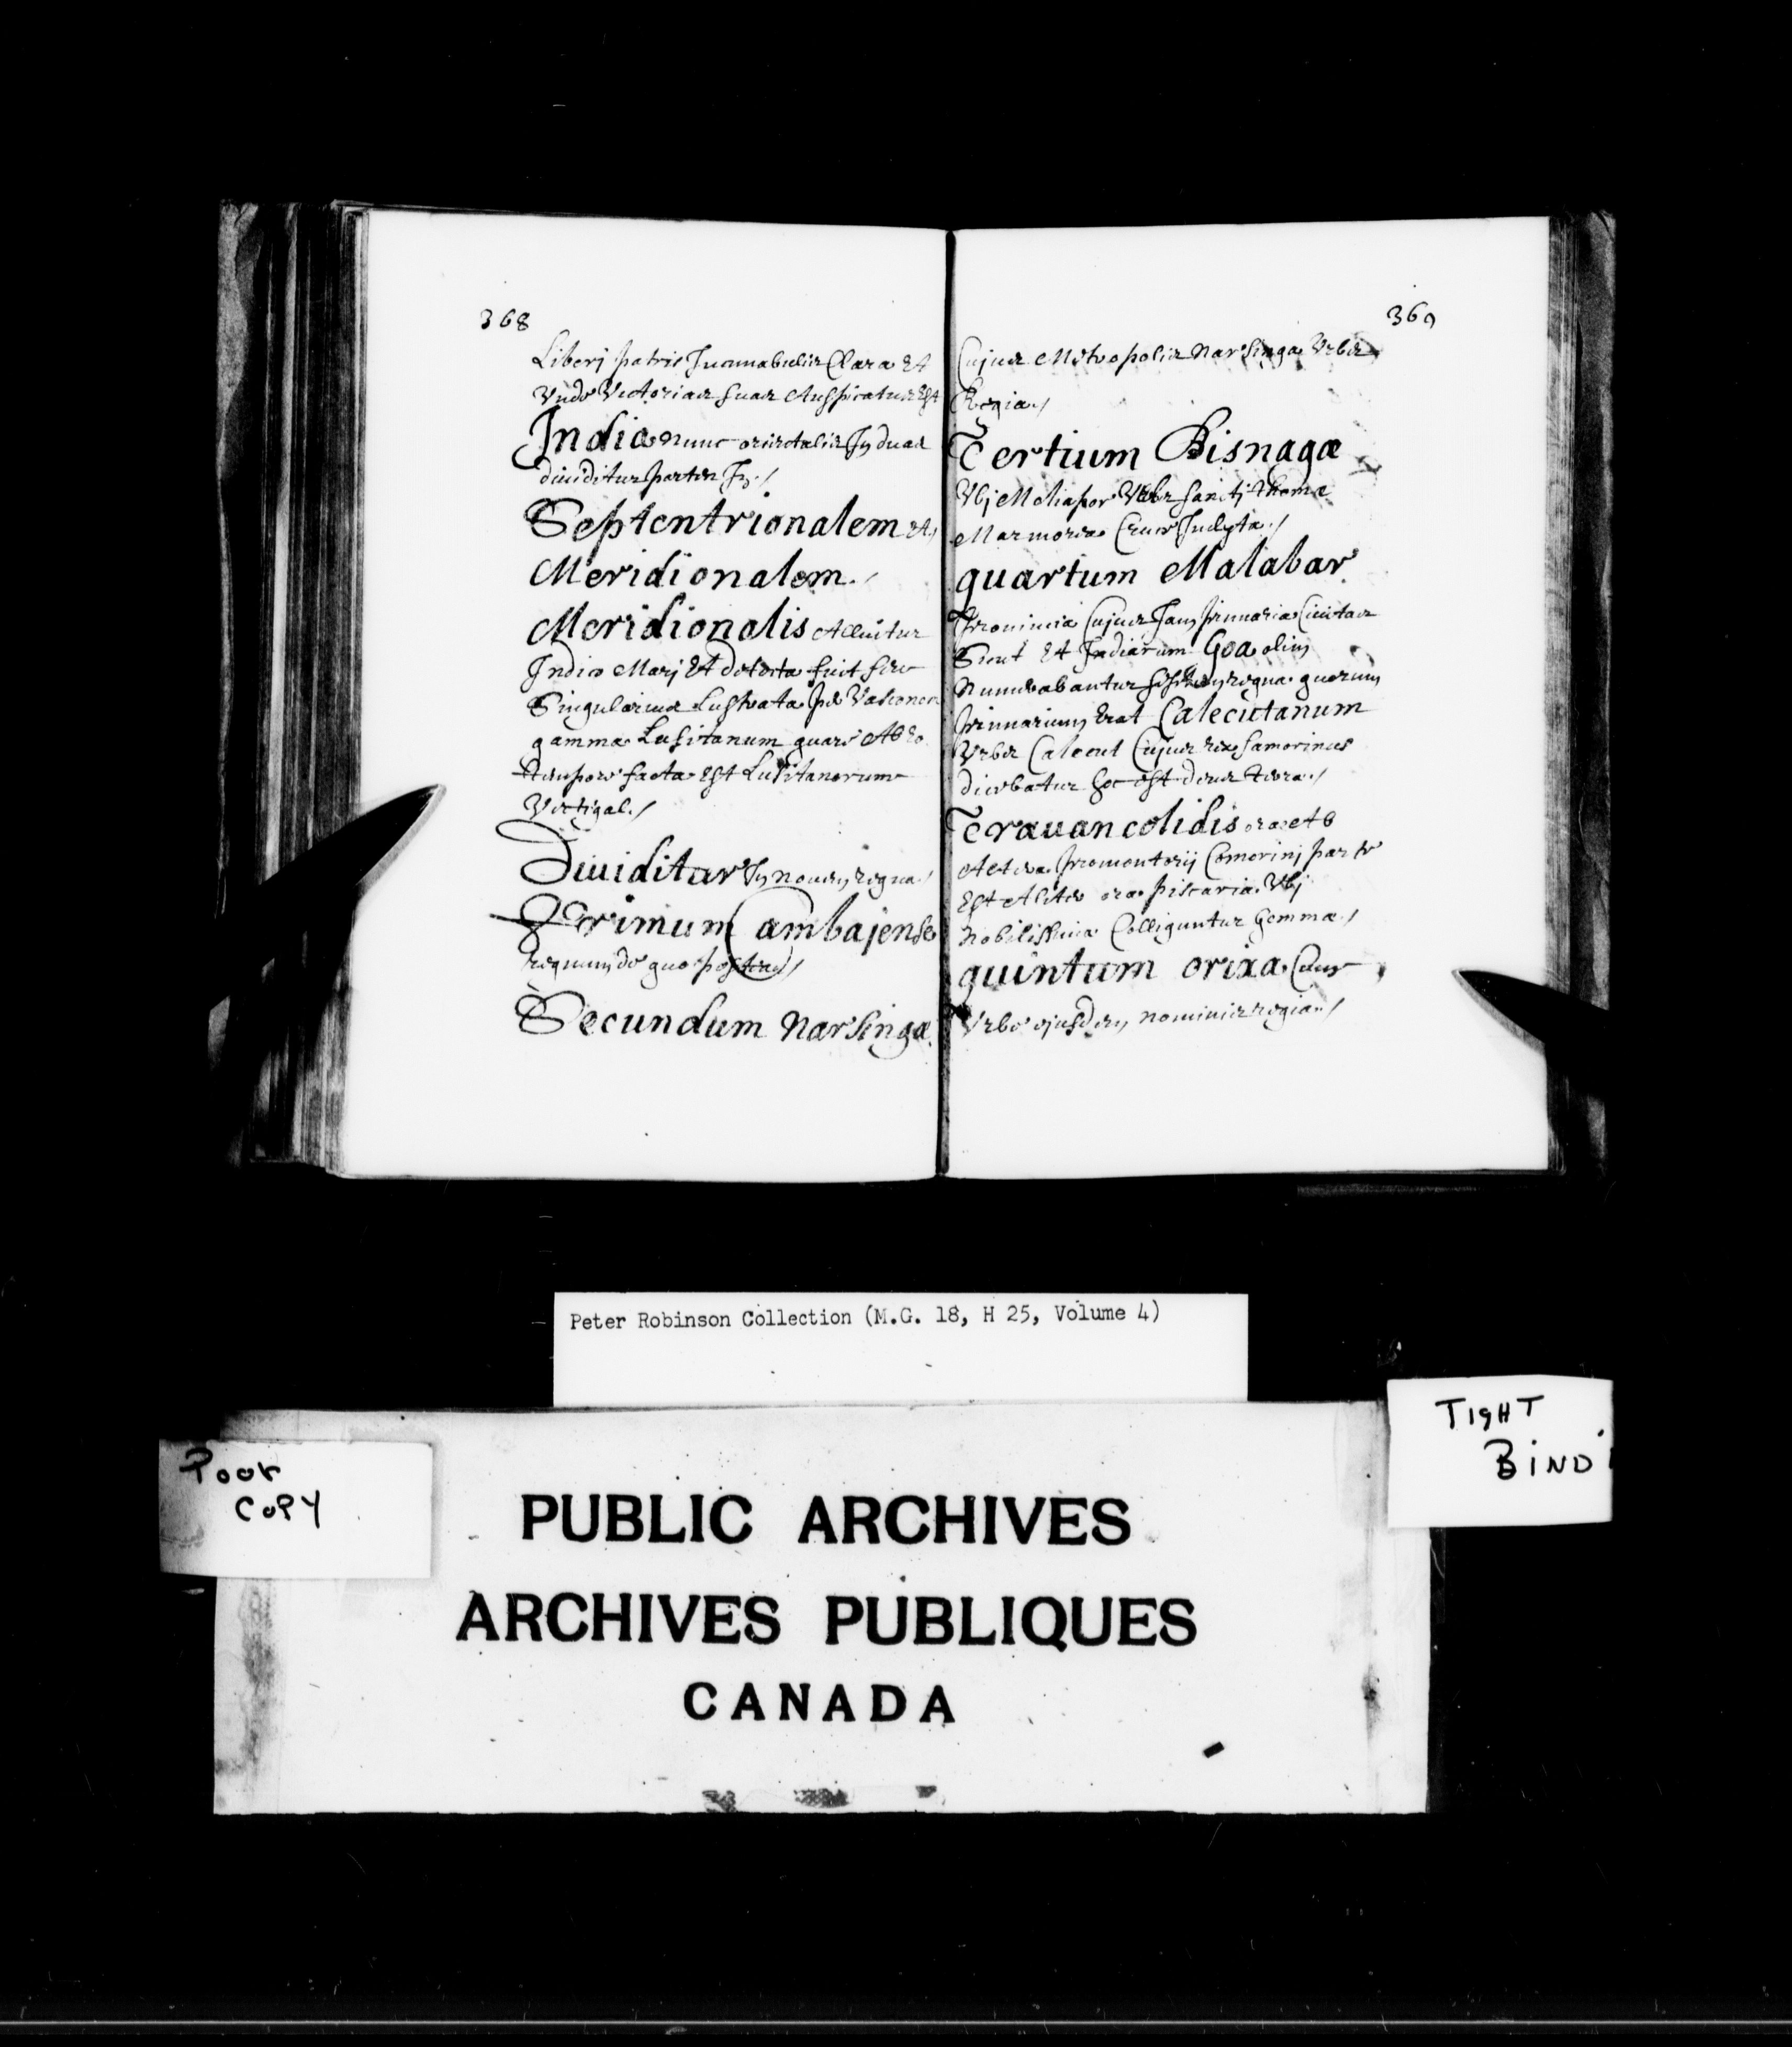 368
Liberj patris Incunabulis Clara Et
Vnde Victorias suas Auspicatus Est
India nunc orientalis In duas
diuiditur partes In./
Septentrionalem et,
Meridionalem./
Meridionalis Alluitur
Indico Marj Et detecta fuit seu
Singularius Lustrata per Vasconem
gamma Lusitanum quare Ab eo
tempore facta est Lusitanorum
Vectigal./
Diuiditur In nouem regna./
Primum Cambajense
regnum de quo postea)/
Secundum Narsingæ
369
Cujus Metropolis Narsinga Vrbs
Regia./
Tertium Bisnagæ
Vbj Meliapor Vrbs sanctj thomæ
Marmorea Cruce Inclyta./
quartum Malabar
Prouincia Cujus Jam primaria Ciuitas
Sicut Et Indiarum Goa olim
Numerabantur regna quorum
primarium Erat Calecutanum
Vrbs Calecut Cujus rex samorinus
dicebatur hoc est deus terræ./
Trauancolidis oræ Ab
Altera Promontorij Comorinj parte
Est Aliter ora piscaria Vbj
Nobilissimæ Colliguntur Gemmæ./
quintum orixa Cum
Vrbe ejusdem nominis regia./
Peter Robinson Collection (M.G. 18, H 25, Volume 4)
Poor
COPY
TIGHT
BIND
PUBLIC ARCHIVES
ARCHIVES PUBLIQUES
CANADA